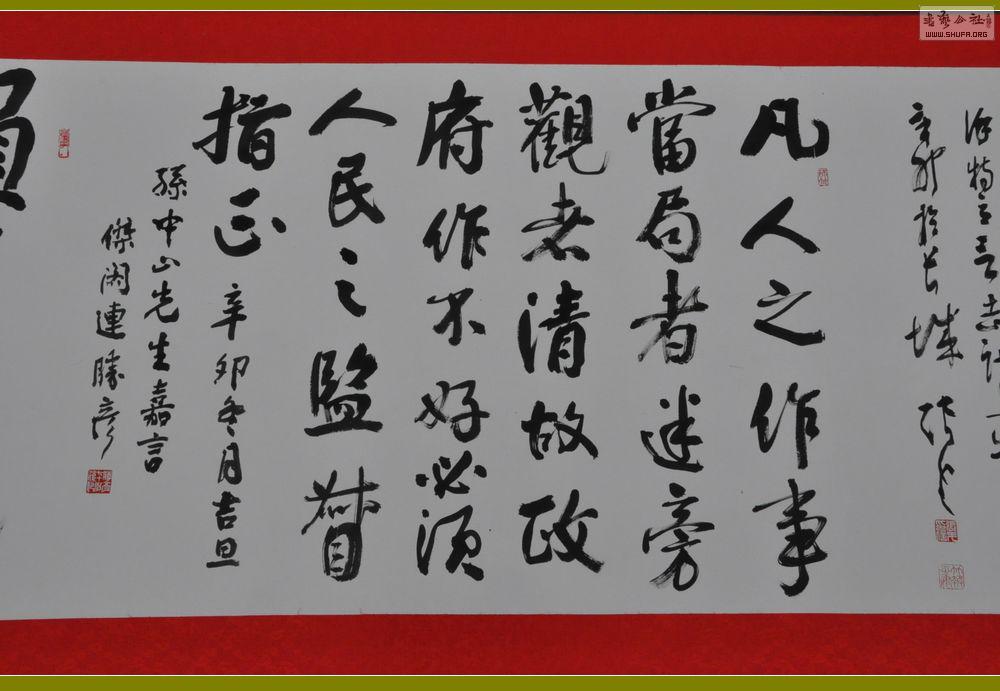 辛卯於长城
凡人之作事
當局者迷旁
觀者清故政
府作不好必須
人民之監督
指正 辛卯冬月吉旦
孫中山先生嘉言
傑閣連勝彦
書藝公社
WWW.SHUFA.ORG